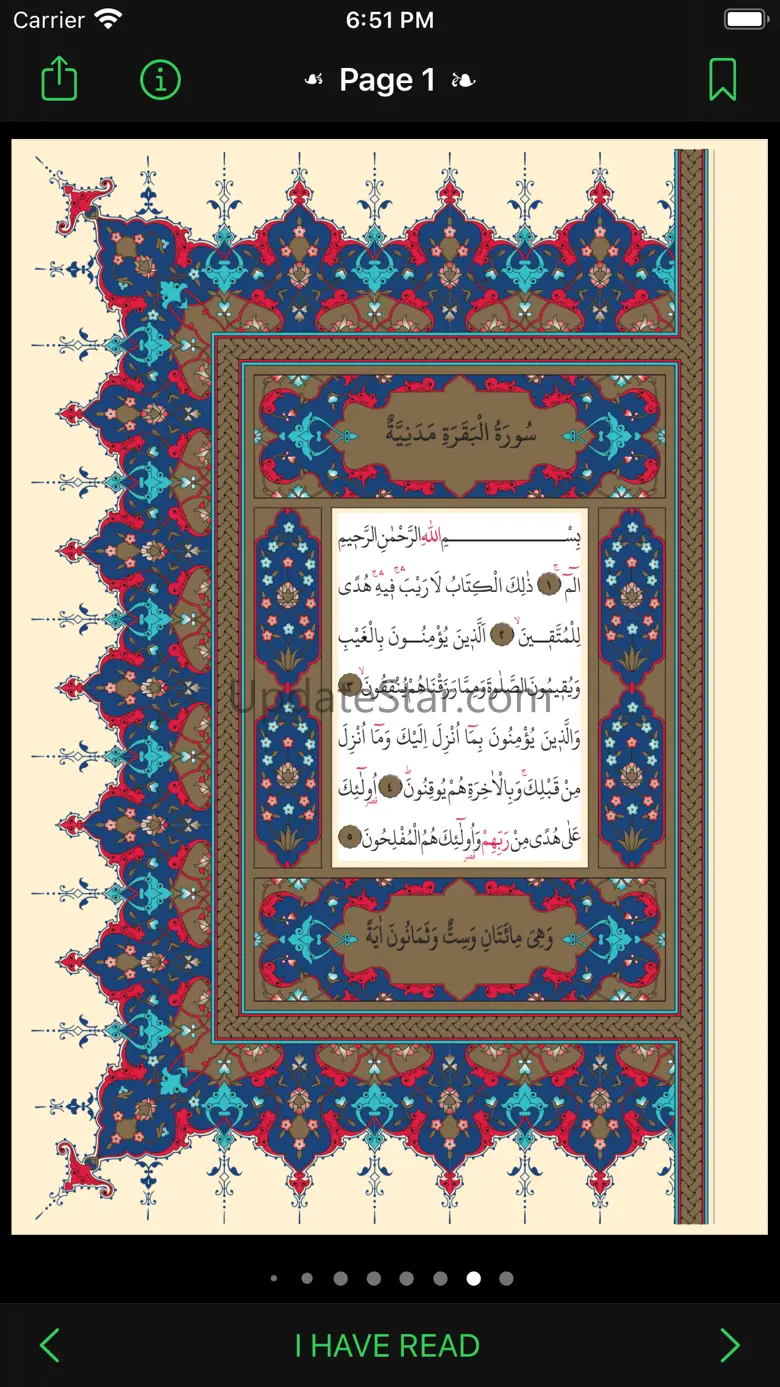 Carrier 6:51 PM
☙ Page 1 ❧
سُورَةُ الْبَقَرَةِ مَدَنِيَّةٌ
بِسْــــــــــــــــمِ اللّٰهِ الرَّحْمٰنِ الرَّح۪يمِ
الٓمٓ ۚ ﴿١﴾ ذٰلِكَ الْكِتَابُ لَا رَيْبَ ۛ ف۪يهِ ۛ هُدًى
لِلْمُتَّق۪ينَ ۙ ﴿٢﴾ اَلَّذ۪ينَ يُؤْمِنُونَ بِالْغَيْبِ
وَيُق۪يمُونَ الصَّلٰوةَ وَمِمَّا رَزَقْنَاهُمْ يُنْفِقُونَ ۙ ﴿٣﴾
UpdateStar.com
وَالَّذ۪ينَ يُؤْمِنُونَ بِمَٓا اُنْزِلَ اِلَيْكَ وَمَٓا اُنْزِلَ
مِنْ قَبْلِكَ ۚ وَبِالْاٰخِرَةِ هُمْ يُوقِنُونَ ۜ ﴿٤﴾ اُو۬لٰٓئِكَ
قصر
عَلٰى هُدًى مِنْ رَبِّهِمْ وَاُو۬لٰٓئِكَ هُمُ الْمُفْلِحُونَ ﴿٥﴾
قصر
وَهِيَ مِائَتَانِ وَسِتٌّ وَثَمَانُونَ اٰيَةً
I HAVE READ